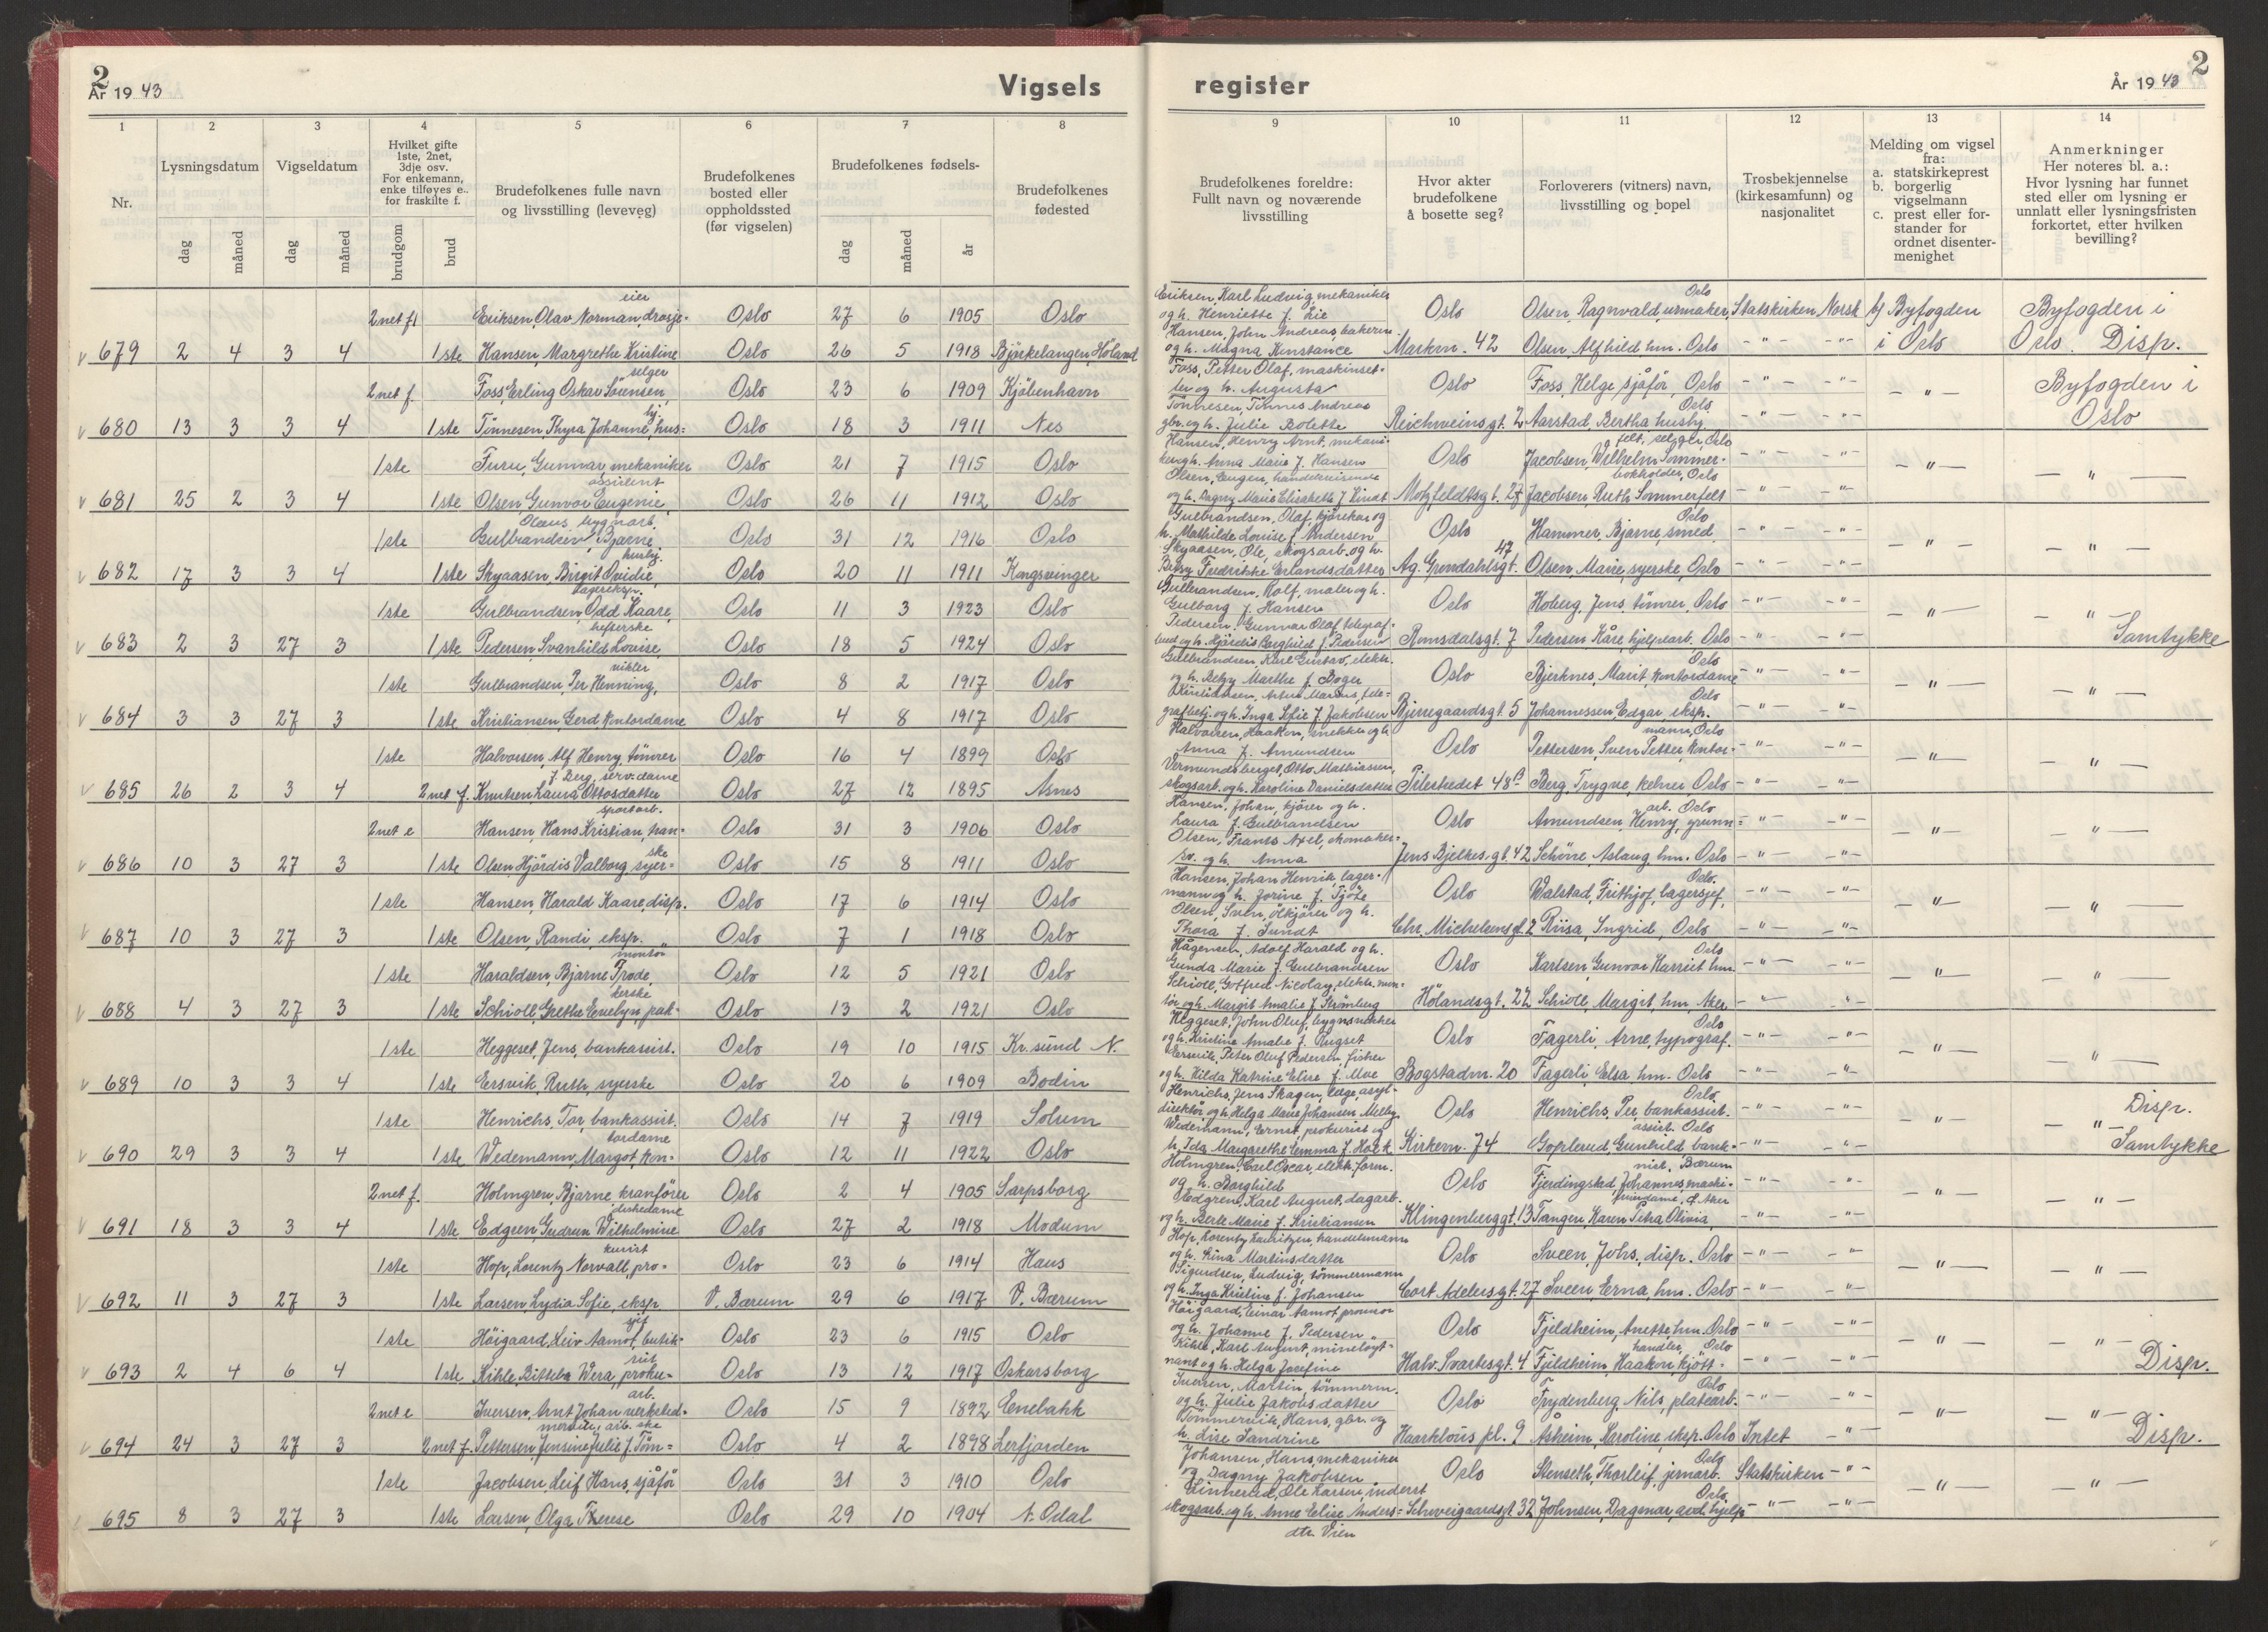 2
År 1943
Vigsels
register
År 1943
2
1 2 3 4 5 6 7 8 9 10 11 12 13 14
Nr.
Lysningsdatum
Vigseldatum
dag måned dag måned
Hvilket gifte
1ste, 2net,
3dje osv.
For enkemann,
enke tilføyes e..
for fraskilte f.
brudgom brud
Brudefolkenes fulle navn
og livsstilling (leveveg)
Brudefolkenes
bosted eller
oppholdssted
(før vigselen)
Brudefolkenes fødsels-
dag måned år
Brudefolkenes
fødested
Brudefolkenes foreldre:
Fullt navn og noværende
livsstilling
Hvor akter
brudefolkene
å bosette seg?
Forloverers (vitners) navn,
livsstilling og bopel
Trosbekjennelse
(kirkesamfunn) og
nasjonalitet
Melding om vigsel
fra:
a. statskirkeprest
b. borgerlig
vigselmann
c. prest eller for-
stander for
ordnet disenter-
menighet
Anmerkninger
Her noteres bl. a.:
Hvor lysning har funnet
sted eller om lysning er
unnlatt eller lysningsfristen
forkortet, etter hvilken
bevilling?
2net f Eriksen, Olav Norman, drosje-eier Oslo 27 6 1905 Oslo
Eriksen, Karl Ludvig, mekaniker
og h. Henriette f. Lie
Oslo Olsen, Ragnvald, urmaker, Oslo Statskirken Norsk b) Byfogden Byfogden i
679 2 4 3 4 1ste Hansen, Margrethe Kristine Oslo 26 5 1918 Bjørkelangen, Høland
Hansen, John Andreas, bakerm.
og h. Magna Konstance
Markvn. 42 Olsen Alfhild hm. Oslo -"- -"- i Oslo Oslo. Disp.
2net f. Foss, Erling Oskar Sörensen, selger Oslo 23 6 1909 Kjöbenhavn
Foss, Petter Olaf, maskinset-
ter og h. Augusta
Oslo Foss, Helge sjåför, Oslo -"- -"- -"- Byfogden i
680 13 3 3 4 1ste Tönnesen, Thyra Johanne, hus-hj. Oslo 18 3 1911 Nes
Tönnesen, Tönnes Andreas
gbr. og h. Julie Bolette
Reichweinsgt. 2 Aarstad, Bertha hushj. Oslo -"- -"- Oslo
1ste Furu, Gunnar, mekaniker Oslo 21 7 1915 Oslo
Hansen, Henry Arnt, mekani-
ker og h. Anna Marie f. Hansen
Oslo Jacobsen, Wilhelm Sommerfelt, selger, Oslo -"- -"- -"- -"-
681 25 2 3 4 1ste Olsen, Gunvor Eugenie, assistent Oslo 26 11 1912 Oslo
Olsen, Eugen, handelsreisende
og h. Dagny Marie Elisabeth f. Lindt
Motzfeldtsgt. 27 Jacobsen, Ruth Sommerfelt bokholder, Oslo -"- -"-
1ste Gulbrandsen, Bjarne Olaus, bygn.arb. Oslo 31 12 1916 Oslo
Gulbrandsen, Olaf, kjörekar og
h. Mathilde Louise f. Andersen
Oslo Hammer, Bjarne, smed, Oslo -"- -"- -"- -"-
682 17 3 3 4 1ste Skyaasen, Birgit Ovidie, hushj. Oslo 20 11 1911 Kongsvinger
Skyaasen, Ole, skogsarb. og h.
Berny Fredrikke Erlandsdatter
Ag. Gröndahlsgt. 47 Olsen, Marie, syerske, Oslo -"- -"-
1ste Gulbrandsen, Odd Kaare, lagereksp. Oslo 11 3 1923 Oslo
Gulbrandsen, Rolf, maler og h.
Gulborg f. Hansen
Oslo Hoberg, Jens, tömrer, Oslo -"- -"- -"- -"-
683 2 3 27 3 1ste Pedersen, Svanhild Lovise, hefterske Oslo 18 5 1924 Oslo
Pedersen, Gunnar Olaf telegraf-
bud og h. Hjördis Borghild f. Pedersen
Romsdalsgt. 7 Pedersen Kåre, hjelpearb. Oslo -"- -"- Samtykke
1ste Gulbrandsen, Per Henning, vikler Oslo 8 2 1917 Oslo
Gulbrandsen, Karl Gustav, elektr.
og h. Betzy Marthe f. Boger
Oslo Bjerknes, Marit, kontordame Oslo -"- -"- -"- -"-
684 3 3 27 3 1ste Kristiansen, Gerd, kontordame Oslo 4 8 1917 Oslo
Kristiansen, Artur Marius, tele-
grafbetj. og h. Inga Sofie f. Jakobsen
Bjerregaardsgt. 5 Johannessen, Edgar, eksp. Oslo -"- -"-
1ste Halvorsen, Alf Henry, tömrer Oslo 16 4 1899 Oslo
Halvorsen, Haakon, snekker og h.
Anna f. Amundsen
Oslo Pettersen, Sven Petter, kontor-mann, Oslo -"- -"- -"- -"-
685 26 2 3 4 2net f. Knutsen Laura Ottosdatter f. Berg, serv.dame Oslo 27 12 1895 Åsnes
Vermundsberget, Otto Mathiassen,
skogsarb. og h. Karoline Danielsdatter
Pilestredet 48B Berg, Trygve, kelner Oslo -"- -"-
2net e Hansen, Hans Kristian, tran-sportarb. Oslo 31 3 1906 Oslo
Hansen, Johan, kjörer og h.
Laura f. Gulbrandsen
Oslo Amundsen, Henry, grunn-arb. Oslo -"- -"- -"- -"-
686 10 3 27 3 1ste Olsen Hjördis Valborg, syer-ske Oslo 15 8 1911 Oslo
Olsen, Frants Axel, skomaker-
sv. og h. Anna
Jens Bjelkes. gt. 42 Schöne, Aslaug, hm. Oslo -"- -"-
1ste Hansen, Harald Kaare, disp. Oslo 17 6 1914 Oslo
Hansen, Johan Henrik, lager-
mann og h. Jorine f. Tjöte
Oslo Walstad, Frithjof, lagersjef, Oslo. -"- -"- -"- -"-
687 10 3 27 3 1ste Olsen, Randi eksp. Oslo 7 1 1918 Oslo
Olsen, Sven, ölkjörer og h.
Thora f. Sundt
Chr. Michelsensgt. 2 Riisa, Ingrid, Oslo -"- -"-
1ste Haraldsen, Bjarne Frode, montör Oslo 12 5 1921 Oslo
Hågensen, Adolf Harald og h.
Gunda Marie f. Gulbrandsen
Oslo Karlsen, Gunvor Harriet hm. Oslo -"- -"- -"- -"-
688 4 3 27 3 1ste Schiöll, Grethe Evelyn, pak-kerske Oslo 13 2 1921 Oslo
Schiöll, Gotfred Nicolay, elektr. mon-
tör og h. Margit Amalie f. Strömberg
Hölandsgt. 22 Schiöll, Margit, hm, Aker -"- -"-
1ste Heggeset, Jens, bankassist. Oslo 19 10 1915 Kr.sund N.
Heggeset, John Oluf, bygnsnekker
og h. Kristine Amalie f. Rugset
Oslo Fagerli, Arne, typograf. Oslo -"- -"- -"- -"-
689 10 3 3 4 1ste Eersvik, Ruth, syerske Oslo 20 6 1909 Bodin
Eersvik, Peter Oluf Pedersen, fisker
og h. Hilda Katrine Elise f. Moe
Bogstadvn. 20 Fagerli, Elsa hm. Oslo -"- -"-
1ste Henrichs, Tor, bankassist. Oslo 14 7 1919 Solum
Henrichs, Jens Skagen, lege, asyl-
direktör og h. Helga Marie Johansen Melby
Oslo Henrichs, Per, bankassist. Oslo -"- -"- -"- Disp.
690 29 3 3 4 1ste Wedemann, Margot, kon-tordame Oslo 12 11 1922 Oslo
Wedemann, Ernst, prokurist og
h. Ida Margarethe Emma f. Holck
Kirkevn. 74 Goplerud, Gunhild, bank-assist. Oslo -"- -"- -"- Samtykke
2net f. Holmgren, Bjarne kranförer Oslo 2 4 1905 Sarpsborg
Holmgren, Carl Oscar, elektr. form.
og h. Borghild
Oslo Fjerdingstad, Johannes maski-nist, Bærum -"- -"- -"- -"-
691 18 3 3 4 1ste Edgren, Gudrun Wilhelmine diskedame Oslo 27 2 1918 Modum
Edgren, Karl August, dagarb.
og h. Berle Marie f. Kristiansen
Klingenberggt. 13 Tangen, Karen Petra Olivia, -"- -"-
1ste Hop, Lorentz Norvall, pro-kurist Oslo 23 6 1914 Haus
Hop, Lorentz Lauritzen, handelsmann
og h. Stina Martinsdatter
Oslo Sveen, Johs., disp. Oslo -"- -"- -"- -"-
692 11 3 27 3 1ste Larsen, Lydia Sofie, eksp V. Bærum 29 6 1917 V. Bærum
Sigurdsen, Ludvig, tömmermann
og h. Inga Kristine f. Johansen
Cort Adelersgt. 27 Sveen, Erna, hm. Oslo -"- -"-
1ste Höigaard, Leiv Aamot, butik-sjef Oslo 23 6 1915 Oslo
Höigaard, Einar Aamot, provisor
og h. Johanne f. Pedersen
Oslo Fjeldheim, Anette, hm. Oslo -"- -"- -"- -"-
693 2 4 6 4 1ste Kihle, Bitteba Wera, proku-rist Oslo 13 12 1917 Oskarsborg
Kihle, Karl August, mineløyt-
nant og h. Helga Josefine
Halv. Svartesgt. 4 Fjeldheim, Haakon, kjött-handler, Oslo -"- -"- Disp.
2net e Iversen, Arnt Johan verksted-arb. Oslo 15 9 1892 Enebakk
Iversen, Martin, tömmerm.
og h. Julie Jakobsdatter
Oslo Frydenberg, Nils, platearb. Oslo -"- -"- -"- -"-
694 24 3 27 3 2net f. Pettersen, Jensine Julie f. Töm-mervik, arb.ske Oslo 4 2 1898 Leirfjorden
Tömmervik, Hans, gbr. og
h. Lise Sandrine
Haarklöus pl. 9 Åsheim, Karoline, eksp. Oslo Intet -"- Disp.
1ste Jacobsen, Leif Hans, sjåför Oslo 31 3 1910 Oslo
Johansen, Hans, mekaniker
og Dagny Jakobsen
Oslo Stenseth, Thorleif, jernarb. Oslo Statskirken -"- -"- -"-
695 8 3 27 3 1ste Larsen, Olga Therese Oslo 29 10 1904 N. Odal
Linnerud, Ole Larsen, inderst
skogsarb. og h. Anne Elise Anders-
dtr. Vien
Schweigaardsgt 32 Johnsen, Dagmar, avd.hjelp Oslo -"- -"-